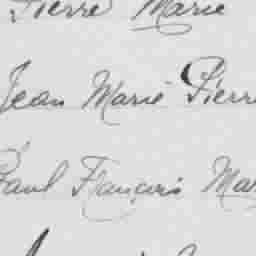 Pierre Marie
Jean Marie Pierre
Paul François Mar